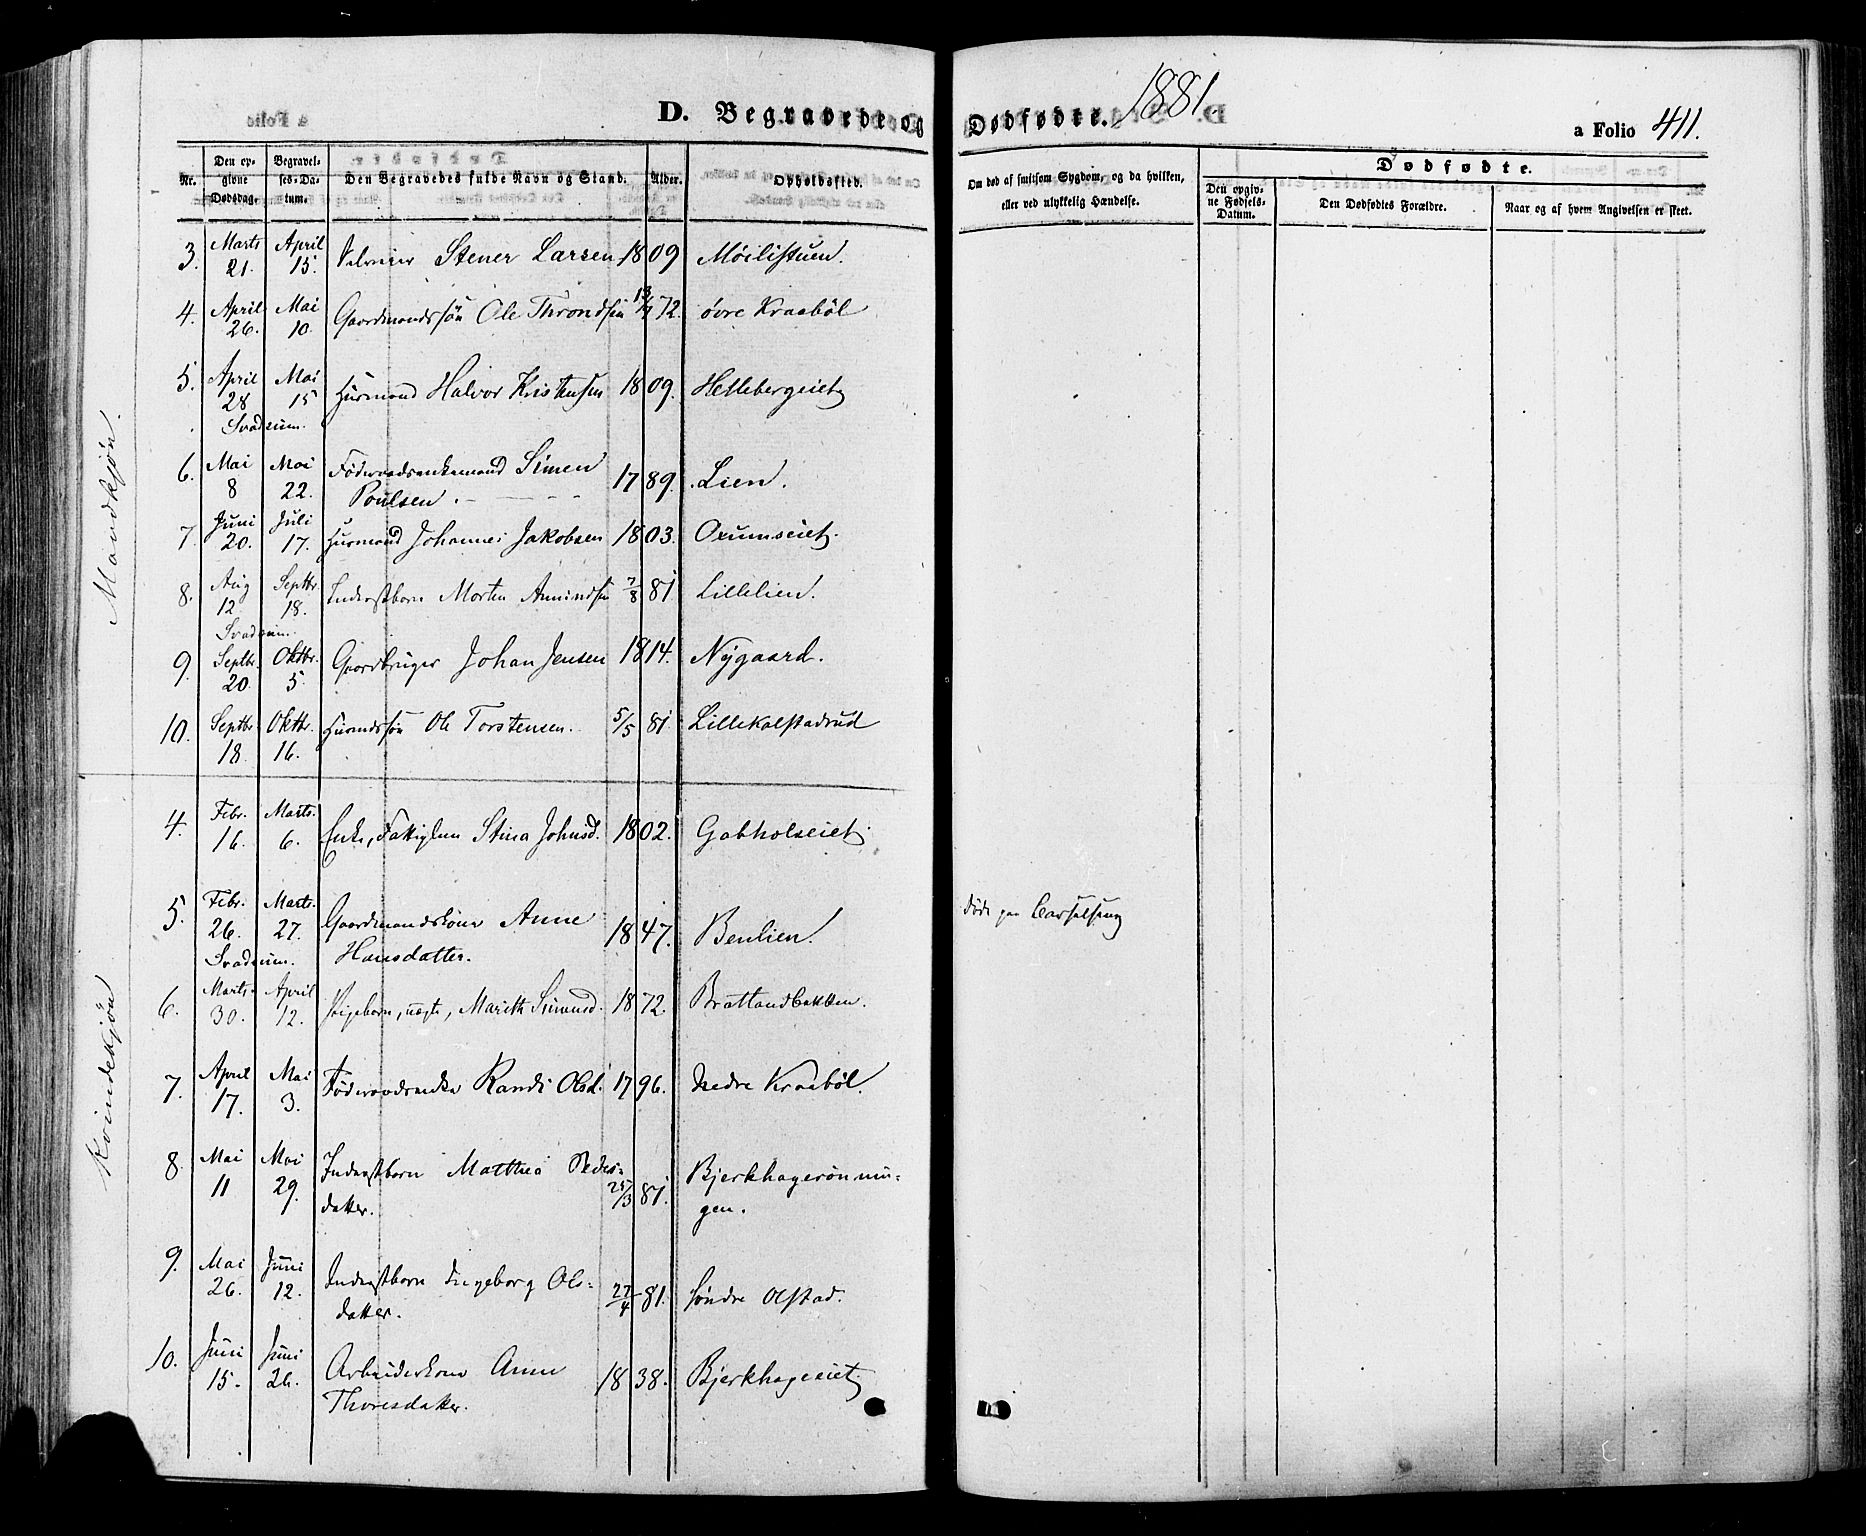 D. Begravede og Dødfødte. 1881
a Folio 411.
Nr. Den opgivne Dødsdag. Begravelses-Datum. Den Begravedes fulde Navn og Stand. Alder. Opholdssted. Om død af smitsom Sygdom, og da hvilken, eller ved ulykkelig Hændelse.
Dødfødte.
Den opgivne Fødsels-Datum. Den Dødfødtes Forældre. Naar og af hvem Angivelsen er skeet.
Mandkjøn.
3. Marts 21. April 15. Stener Larsen 1809 Möilistuen.
4. April 26. Mai 10. Gaardmandssön Ole Throndsen 72. övre Kraaböl
5. April 28 Mai 15 Husmand Halvor Kristensen 1809. Hellebergeiet
Svadsum.
6. Mai 8 Mai 22. Föderaadsenkemand Simen
Poulsen. 1789. Lien.
7. Juni 20. Juli 17. Husmand Johannes Jakobsen 1803. Oxumseiet.
8. Aug 12. Septbr. 18. Inderstbarn Morten Amundsen 7/8 81 Lillelien.
Svadsum.
9. Septbr. 20. Oktbr. 5. Gaardbruger Johan Jensen 1814. Nÿgaard.
10. Septbr. 18. Oktbr. 16. Husmdssön Ole Torstensen. 5/5 81. Lillekolstadrud
Kvindekjön
4. Febr. 16. Marts. 6. Enke, Fattiglem Stina Johnsd. 1802. Gobholseiet.
5. Febr. 26. Marts. 27. Gaardmandskone Anne
Hansdatter. 1847. Benlien. döde paa Barselseng
Svadsum.
6. Marts 30. April 12. Pigebarn, uægte, Marith Simensd. 1872. Brattlandbakken.
7. April 17. Mai 3. Föderaadsenke Randi Olsd. 1796. Nedre Kraaböl.
8. Mai 11 Mai 29. Inderstbarn Mathea Peders-
datter. 25/3 81. Bjerkhagerönnin-
gen.
9. Mai 26. Juni 12. Inderstbarn Ingeborg Ols-
datter. 27/4 81. Söndre Olstad.
10. Juni 15. Juni 26. Arbeiderkone Anne
Thoresdatter. 1838. Bjerkhageeiet